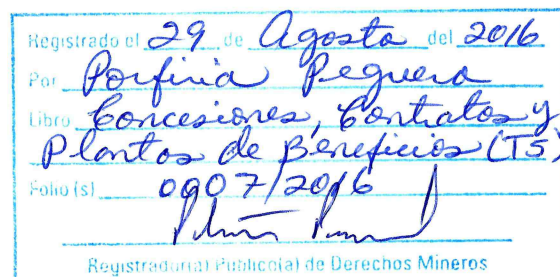 Registrado el 29 de Agosto del 2016
Por Porfiria Peguero
Libro Concesiones, Contratos y
Plantas de Beneficios (T5)
Folio (s) 0007/2016
Registrador(a) Público(a) de Derechos Mineros